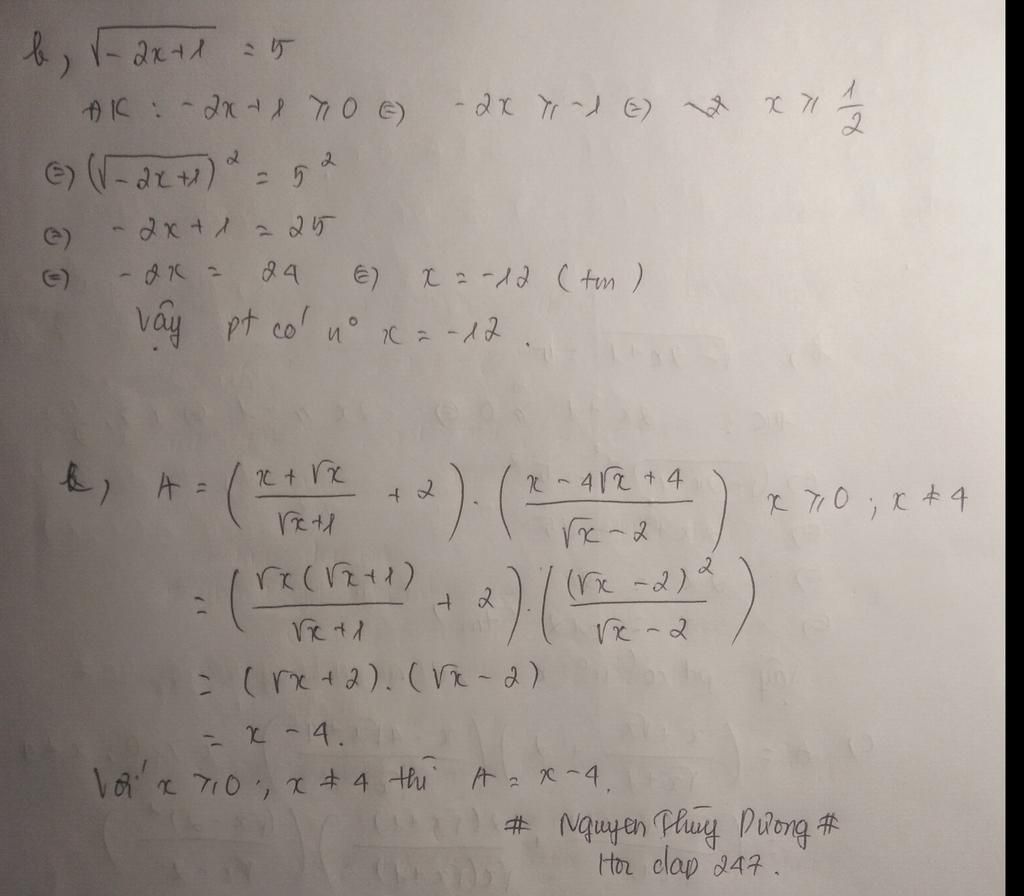 b, √(-2x+1) = 5
ĐK : -2x+1 ⩾ 0 ⇔ -2x ⩾ -1 ⇔ x ⩾ 1/2
⇔ (√(-2x+1))² = 5²
⇔ -2x+1 = 25
⇔ -2x = 24 ⇔ x = -12 (tm)
Vậy pt có n° x = -12.
b, A = ((x+√x)/(√x+1) + 2).((x-4√x+4)/(√x-2)) x ⩾ 0 ; x ≠ 4
= ((√x(√x+1))/(√x+1) + 2).((√x-2)²/(√x-2))
= (√x+2).(√x-2)
= x - 4.
Với x ⩾ 0 ; x ≠ 4 thì A = x-4.
# Nguyen Thùy Dương #
Hoi dap 247.